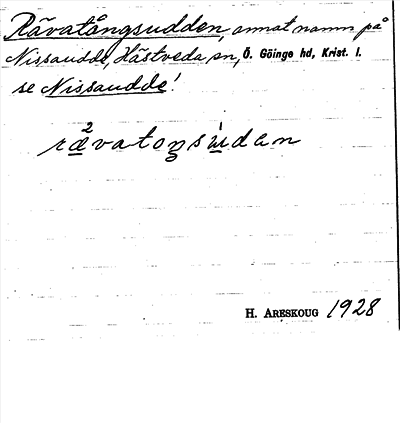 Rävatångsudden, annat namn på
Nissaudde, Hästveda sn, Ö. Göinge hd, Krist. l.
se Nissaudde!
H. Areskoug 1928